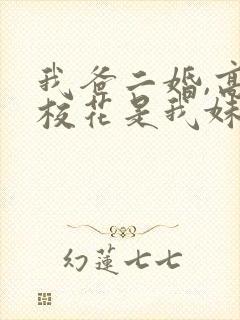 我爸二婚,高
校花是我妹
幻莲七七